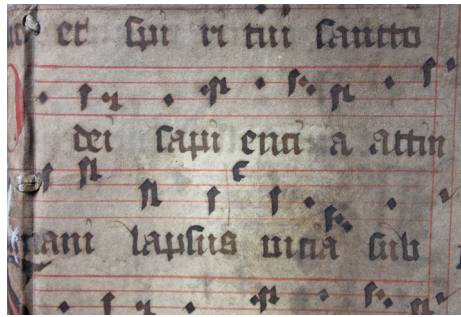 et spi ri tui sancto
dei sapi enti a attin
mani lapsus uicia sub